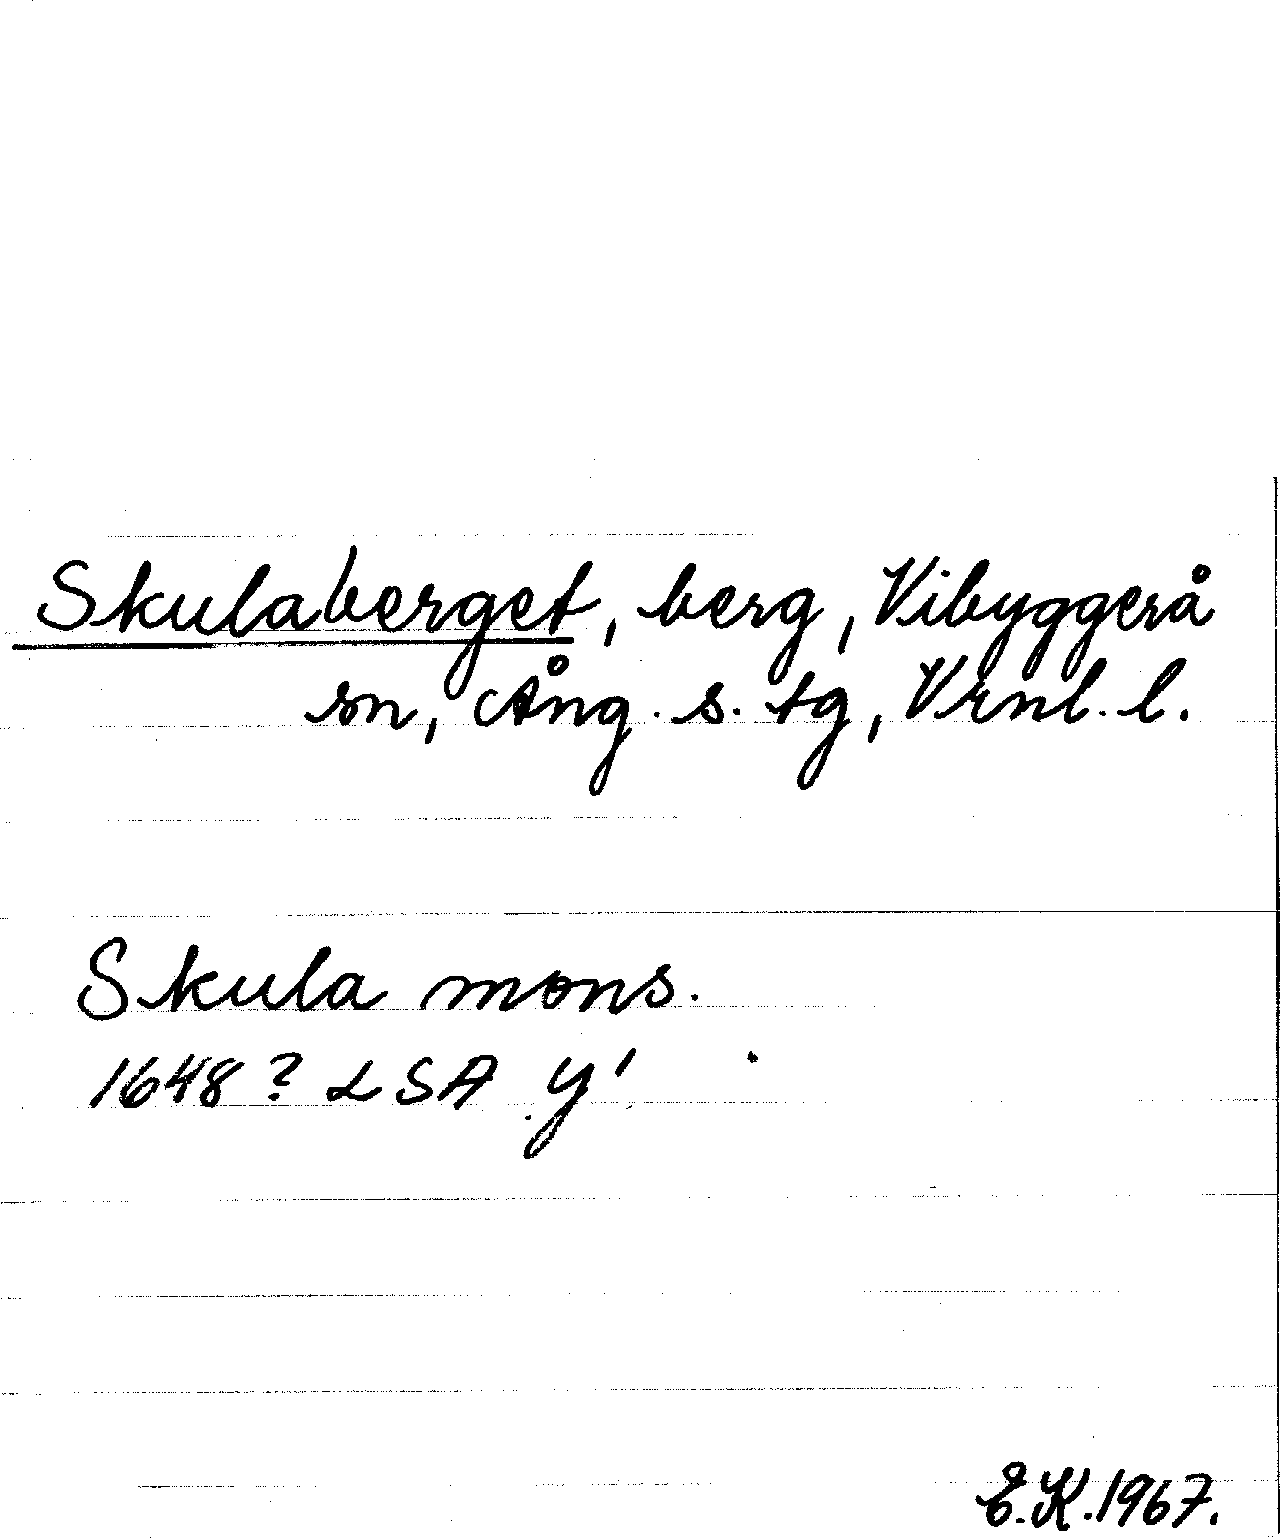 Skulaberget, berg, Vibyggerå
sn, Ång. s. tg, Vrnl. l.
Skula mons.
1648? LSA Y'
E.K.1967.